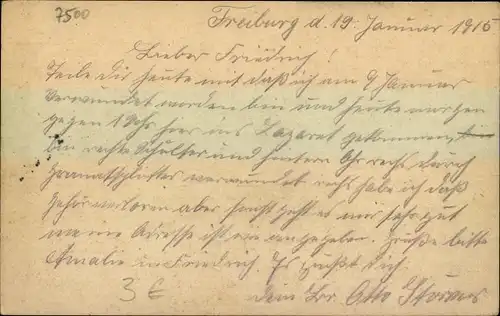 7500
Freiburg d. 19. Januar 1915
Lieber Friedrich!
Teile Dir heute mit daß ich am 9 Januar
verwundet worden bin und heute morgen
gegen 1 Uhr hier ins Lazaret gekommen,
bin rechte Schulter und hintern Ohr rechts durch
Granatsplitter verwundet rechts habe ich daß
Gehör verloren aber sonst geht es mir sehr gut
meine Adresse ist wie angegeben. Grüße bitte
Amalie u. Friedrich. Es grüßt Dich
Dein Br. Otto
3 €